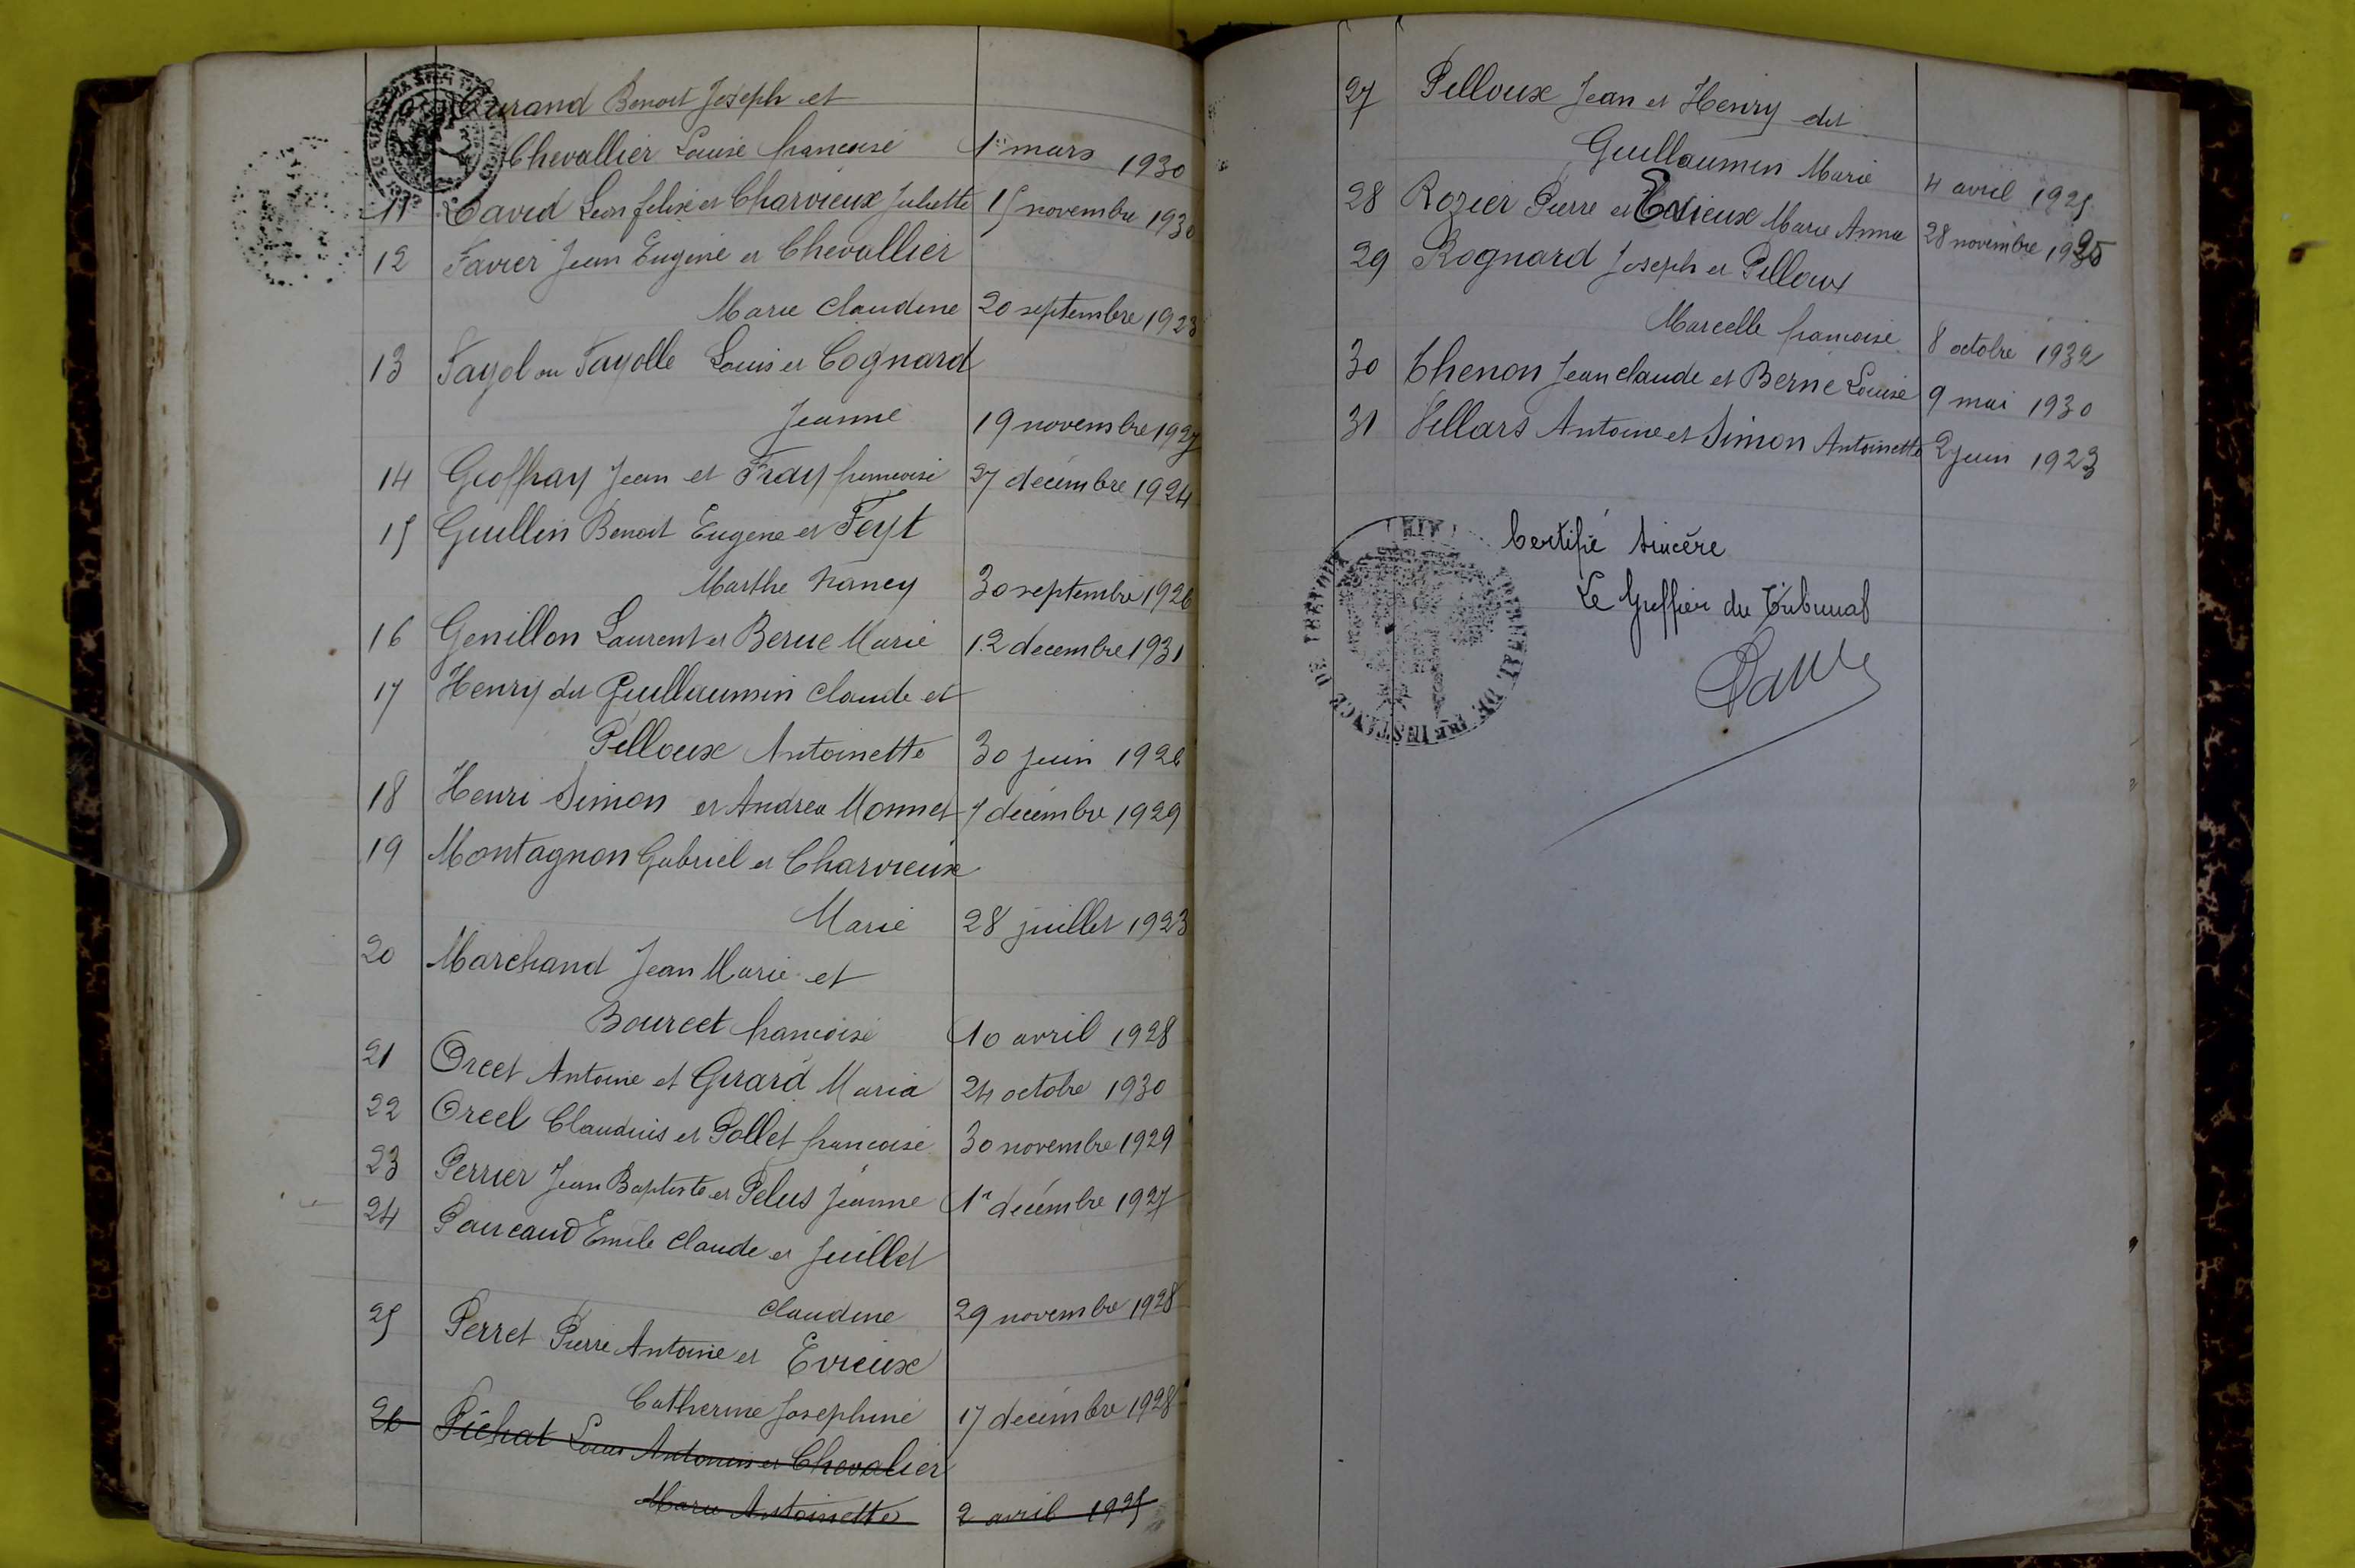 Durand Benoit Joseph et
Chevallier Louise francoise 1er mars 1930
11 David Leon felix et Charvieux Juliette 15 novembre 1930
12 Favier Jean Eugène et Chevallier
Marie Claudine 20 septembre 1923
13 Fayol ou Fayolle Louis et Cognard
Jeanne 19 novembre 1927
14 Geoffray Jean et Fray francoise 27 décembre 1924
15 Guillin Benoit Eugène et Feyt
Marthe Nancy 30 septembre 1926
16 Genillon Laurent et Berne Marie 12 decembre 1931
17 Henry dit Guillaumin Claude et
Pelloux Antoinette 30 juin 1926
18 Henri Simon et Andrea Monnet 7 décembre 1929
19 Montagnon Gabriel et Charvieux
Marie 28 juillet 1923
20 Marchand Jean Marie et
Bourcet francoise 10 avril 1928
21 Orcet Antoine et Girard Maria 24 octobre 1930
22 Orcel Claudius et Pollet francoise 30 novembre 1929
23 Perrier Jean Baptiste et Pelus Jeanne 1er décembre 1927
24 Paucaud Emile Claude et Juillet
Claudine 29 novembre 1928
25 Perret Pierre Antoine et Evieux
Catherine Josephine 17 décembre 1928
26 Pichat Louis Antonin et Chevalier
Marie Antoinette 2 avril 1925
27 Pelloux Jean et Henry dit
Guillaumin Marie 4 avril 1925
28 Rozier Pierre et Evieux Marie Anna 28 novembre 1925
29 Rognard Joseph et Pelloux
Marcelle francoise 8 octobre 1932
30 Thenon Jean claude et Berne Louise 9 mai 1930
31 Villars Antoine et Simon Antoinette 2 juin 1923
Certifié sincère
Le Greffier du Tribunal
TRIBUNAL DE 1ÈRE INSTANCE DE TREVOUX (AIN)